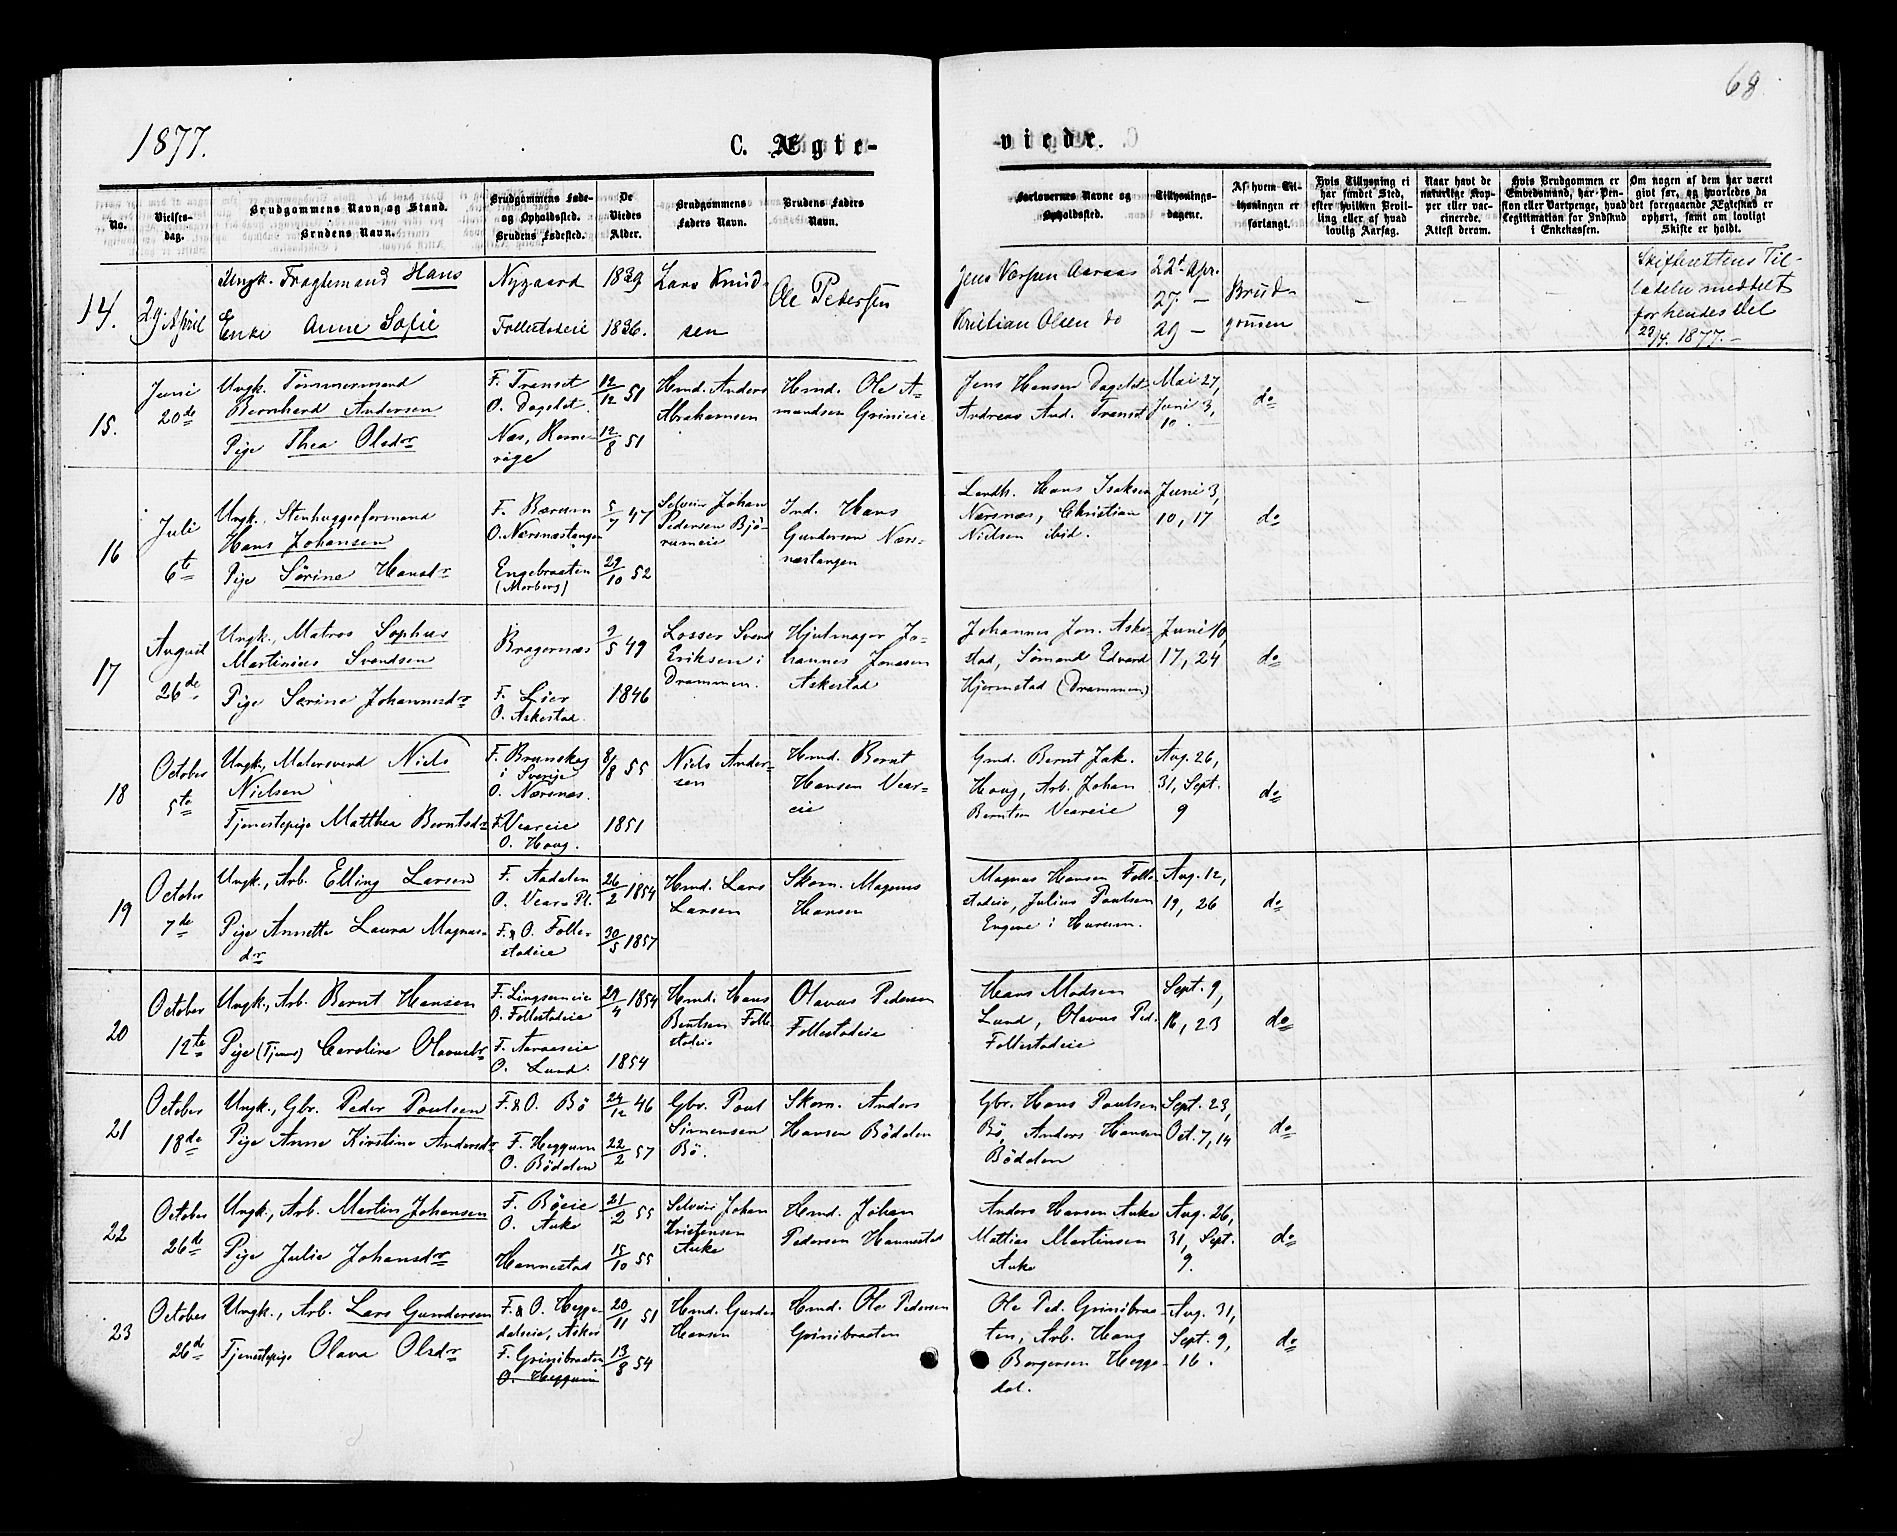 68
1877.
C. Ægte-
viede.
No.
Vielses-
dag.
Brudgommens Navn og Stand.
Brudens Navn.
Brudgommens Føde-
og Opholdssted.
Brudens Fødested.
De
Viedes
Alder.
Brudgommens
Faders Navn.
Brudens Faders
Navn.
Forlovernes Navne og
Opholdssted.
Tillysnings-
dagene.
Af hvem Til-
lysningen er
forlangt.
Hvis Tillysning ei
har fundet Sted,
efter hvilken Bevil-
ling eller af hvad
lovlig Aarsag.
Naar havt de
naturlige Kop-
per eller vac-
cinerede.
Attest derom.
Hvis Brudgommen er
Embedsmand, har Pen-
sion eller Vartpenge, hvad
Legitimation for Indskud
i Enkekassen.
Om nogen af dem har været
givt før, og hvorledes da
det foregaaende Ægteskab er
ophørt, samt om lovligt
Skifte er holdt.
14.
29. April
Ungk. Fragtemand Hans
Enke Anne Sofie
Nygaard
Follestadeie
1839
1836.
Lars Knud-
sen
Ole Pedersen
Jens Aaraas
Kristian Olsen do
22d Apr.
27. —
29 —
Brud-
gommen
—
—
—
Skifterettens Til-
ladelse meddelt
for hendes Del
23/4. 1877. —
15.
Juni
20de
Ungk. Tømmermand
Bernhard Andersen
Pige Thea Olsdr
F. Transet
O. Dagslet.
Næs, Rome-
rige
12/12 51
12/8 51
Hmd. Anders
Abrahamsen
Hmd. Ole A-
mundsen Grinieie
Jens Hansen Dagslet
Andreas And. Transet
Mai 27,
Juni 3,
10.
do
16
Juli
6te
Ungk. Stenhuggerformand
Hans Johansen
Pige Sørine Hansdr
F. Bærum
O. Nærsnæstangen
Engebraaten
(Morberg)
5/7 47
29/10 52
Selveier Johan
Pedersen Bjø-
rumeie
Ind. Hans
Gundersen Nærs-
næstangen
Landh. Hans Isaksen
Nærsnæs, Christian
Nielsen ibid.
Juni 3,
10, 17
do
17
August
26de
Ungk., Matros Sophus
Martinius Svendsen
Pige Sørine Johannesdr
Bragernæs
F. Lier
O. Askestad.
9/5 49
1846
Losser Svend
Eriksen i
Drammen.
Hjulmager Jo-
hannes Jonasen
Askestad
Johannes Jon. Aske-
stad, Sømand Edvard
Hjermstad (Drammen)
Juni 10,
17, 24
do
18
October
5te
Ungk., Malersvend Niels
Nielsen
Tjenestepige Matthea Berntsdr
F. Brunskog
i Sverige
O. Nærsnæs.
F. Veareie
O. Haug.
8/8 55
1851
Niels Ander-
sen
Hmd. Bernt
Hansen Vear-
eie
Gmd. Bernt Jak.
Haug, Arb. Johan
Berntsen Veareie
Aug. 26,
31, Sept.
9
do
19
October
7de
Ungk., Arb. Elling Larsen
Pige Annette Laura Magnus-
dr
F. Aadalen
O. Veara Pl.
F. & O. Folle-
stadeie
26/2 1854
30/5 1857
Hmd. Lars
Larsen
Skom. Magnus
Hansen
Magnus Hansen Folle-
stadeie, Julius Paulsen
Engene i Hurum.
Aug. 12,
19, 26
do
20
October
12te
Ungk., Arb. Bernt Hansen
Pige (Tjenes) Caroline Olavusdr
F. Lingsumeie
O. Follestadeie
F. Aaraaseie
O. Lund.
29/4 1854
1854
Hmd. Hans
Bentsen Folle-
stadeie
Olavus Pedersen
Follestadeie
Hans Madsen
Lund, Olavus Ped.
Follestadeie
Sept. 9,
16, 23
do
21
October
18de
Ungk., Gbr. Peder Paulsen
Pige Anne Kirstine Andersdr
F. & O. Bö
F. Heggum
O. Bödalen
24/12 46
22/2 57
Gbr. Paul
Simensen
Bö.
Skom. Anders
Hansen Bödalen
Gbr. Hans Paulsen
Bö, Anders Hansen
Bödalen
Sept. 23,
Oct. 7, 14
do
22
October
26de
Ungk., Arb. Martin Johansen
Pige Julie Johansdr
F. Böeie
O. Auke
Hannestad
21/2 55
15/10 55
Selveier Johan
Kristensen
Auke
Hmd. Johan
Pedersen Hannestad
Anders Hansen Auke
Mattias Martinsen
Auke
Aug. 26,
31, Sept.
9.
do
23
October
26de
Ungk., Arb. Lars Gundersen
Tjenestepige Olava Olsdr
F. & O. Hegge-
dalseie, Asker
F. Grinibraaten
O. Heggum
20/11 51
13/8 54
Hmd. Gunder
Hansen
Hmd. Ole Pedersen
Grinibraaten
Ole Ped. Grinibraa-
ten, Arb. Hans
Borgersen Hegge-
dal.
Aug. 31,
Sept. 9,
16.
do